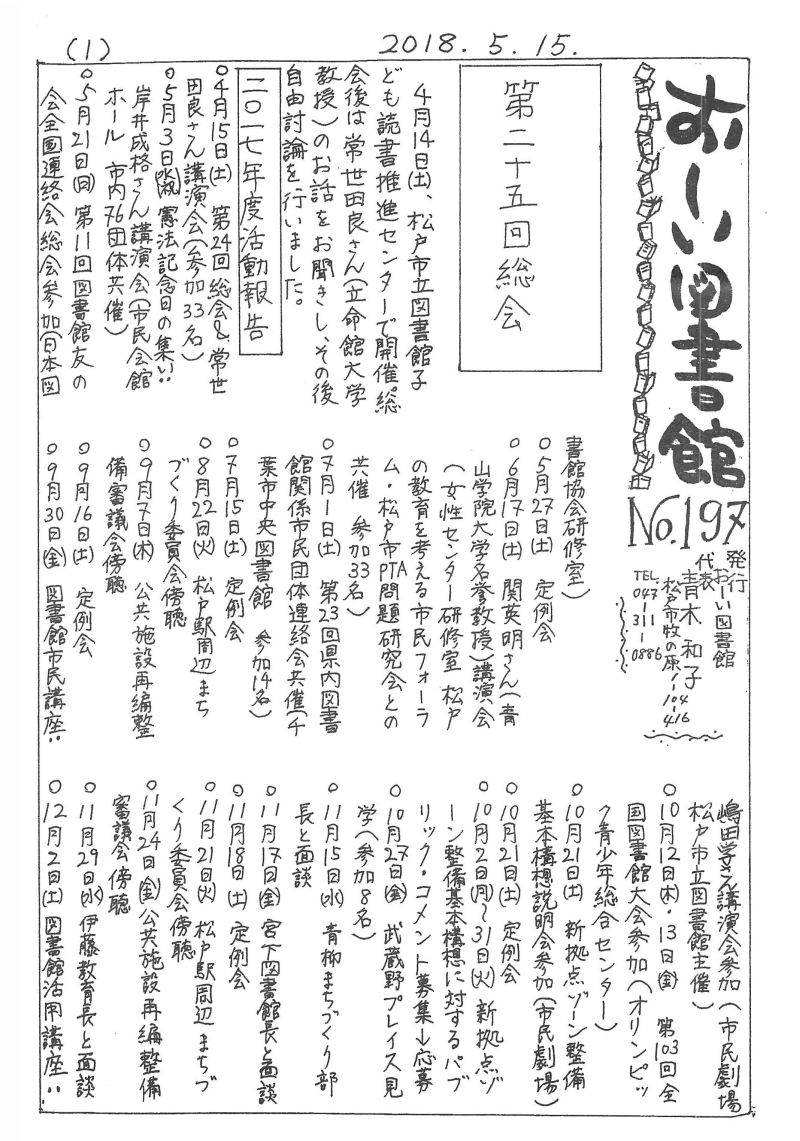 (1)
2018. 5. 15.
おーい図書館
No.197
発行 おーい図書館
代表 青木 和子
松戸市牧の原1-104-416
TEL 047-311-0886
第二十五回総会
4月14日(土)、松戸市立図書館子
ども読書推進センターで開催。総
会後は常世田良さん(立命館大学
教授)のお話をお聞きし、その後
自由討論を行いました。
二〇一七年度活動報告
○4月15日(土) 第24回総会&常世
田良さん講演会(参加33名)
○5月3日(水)(祝)憲法記念日の集い:
岸井成格さん講演会(市民会館
ホール 市内76団体共催)
○5月21日(日) 第11回図書館友の
会全国連絡会総会参加(日本図
書館協会研修室)
○5月27日(土) 定例会
○6月17日(土) 関英明さん(青
山学院大学名誉教授)講演会
(女性センター研修室 松戸
の教育を考える市民フォーラ
ム・松戸市PTA問題研究会との
共催 参加33名)
○7月1日(土) 第23回県内図書
館関係市民団体連絡会共催(千
葉市中央図書館 参加14名)
○7月15日(土) 定例会
○8月22日(火) 松戸駅周辺まち
づくり委員会傍聴
○9月7日(木) 公共施設再編整
備審議会傍聴
○9月16日(土) 定例会
○9月30日(金) 図書館市民講座:
嶋田学さん講演会参加(市民劇場
松戸市立図書館主催)
○10月12日(木)・13日(金) 第103回全
国図書館大会参加(オリンピッ
ク青少年総合センター)
○10月21日(土) 新拠点ゾーン整備
基本構想説明会参加(市民劇場)
○10月21日(土) 定例会
○10月2日(月)〜31日(火) 新拠点ゾ
ーン整備基本構想に対するパブ
リック・コメント募集→応募
○10月27日(金) 武蔵野プレイス見
学(参加8名)
○11月15日(水) 青柳まちづくり部
長と面談
○11月17日(金) 宮下図書館長と面談
○11月18日(土) 定例会
○11月21日(火) 松戸駅周辺まちづ
くり委員会傍聴
○11月24日(金) 公共施設再編整備
審議会傍聴
○11月29日(水) 伊藤教育長と面談
○12月2日(土) 図書館活用講座: